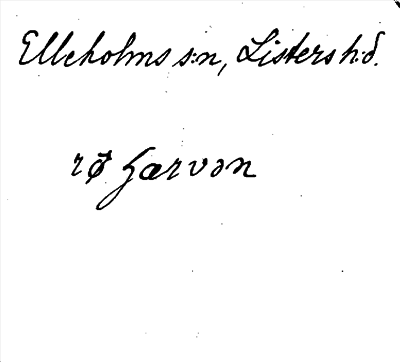 Elleholms s:n, Listers h:d.
rø hærvən